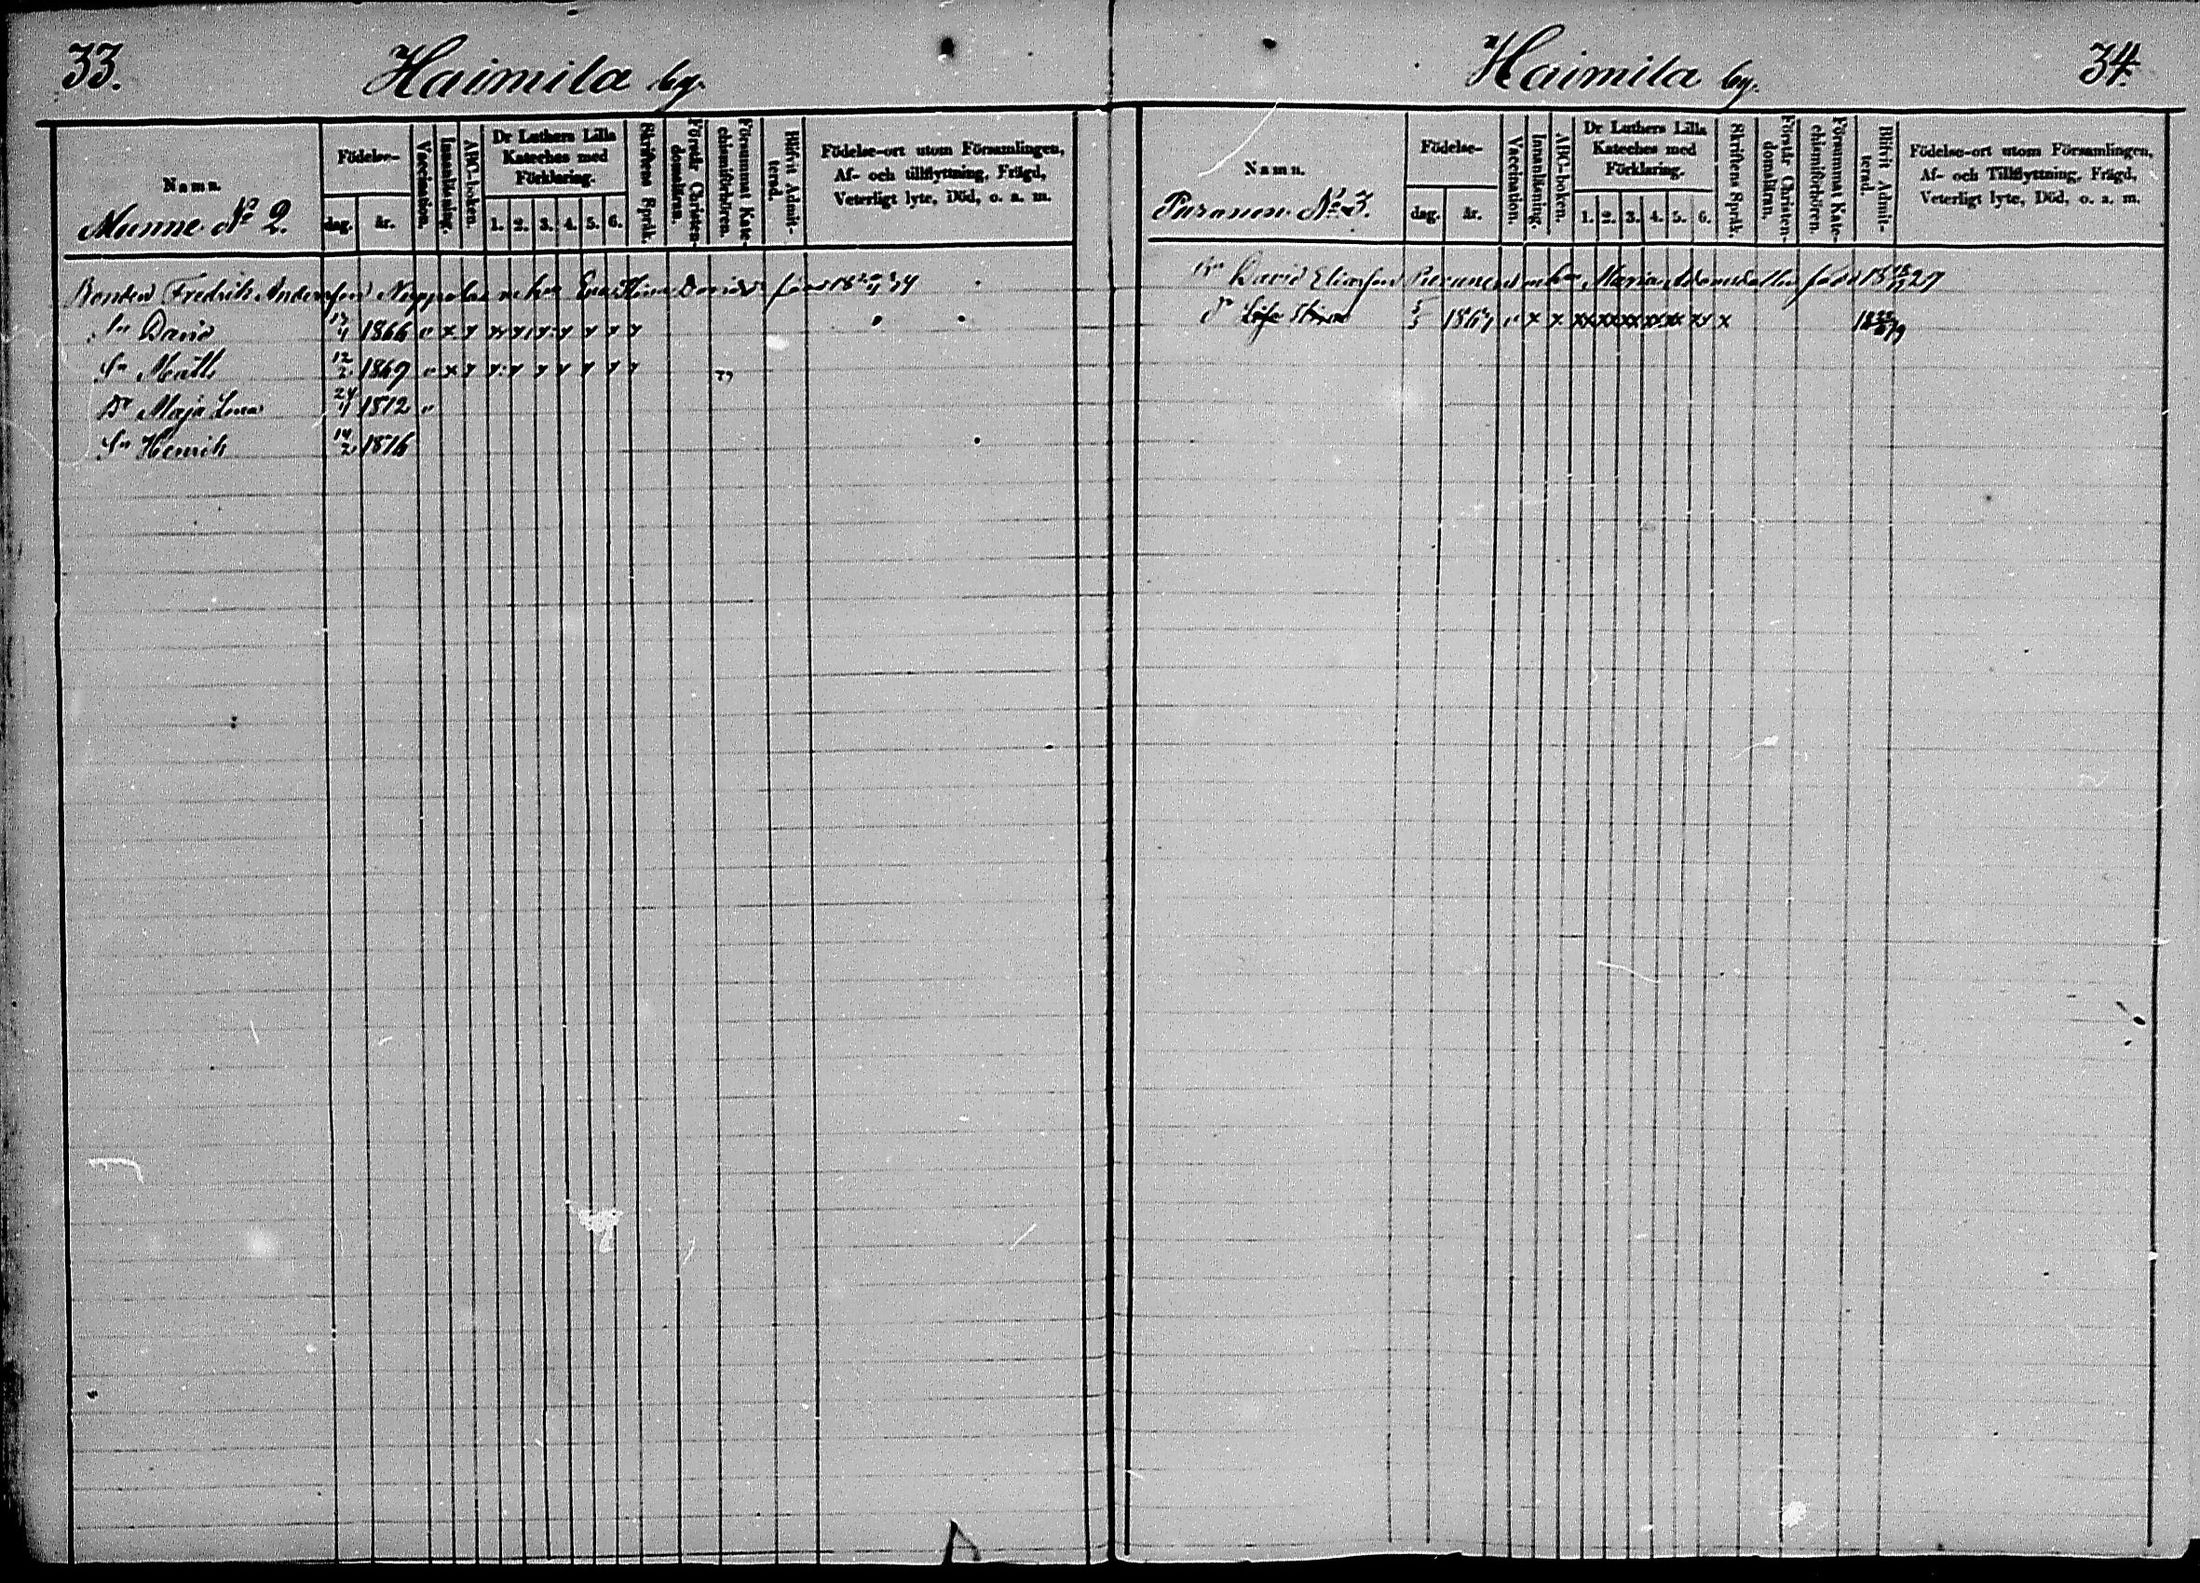 33.
Haimila by.
Namn.
Manne No 2.
Födelse-
dag. år.
Vaccination.
Innanläsning.
ABC-boken.
Dr Luthers Lilla
Kateches med
Förklaring.
1. 2. 3. 4. 5. 6.
Skriftens Språk.
Förstår Christen-
domsläran.
Försummat Kate-
chismiförhören.
Blifvit Admit-
terad.
Födelse-ort utom Församlingen,
Af- och tillflyttning, Frägd,
Veterligt lyte, Död, o. a. m.
Bonden Fredrik Andersson
Sn David 1866 x
Sn Matts 12/2 1869 x
Dr Maja Lena 24 1872
Sn Henrik 14/2 1876
Haimila by.
34.
Namn.
Puranen No 3.
Födelse-
dag. år.
Vaccination.
Innanläsning.
ABC-boken.
Dr Luthers Lilla
Kateches med
Förklaring.
1. 2. 3. 4. 5. 6.
Skriftens Språk.
Förstår Christen-
domsläran.
Försummat Kate-
chismiförhören.
Blifvit Admit-
terad.
Födelse-ort utom Församlingen,
Af- och Tillflyttning, Frägd,
Veterligt lyte, Död, o. a. m.
David Eliasson Puranen Maria
Dr 1867 x x xx xx xx xx xx xx x